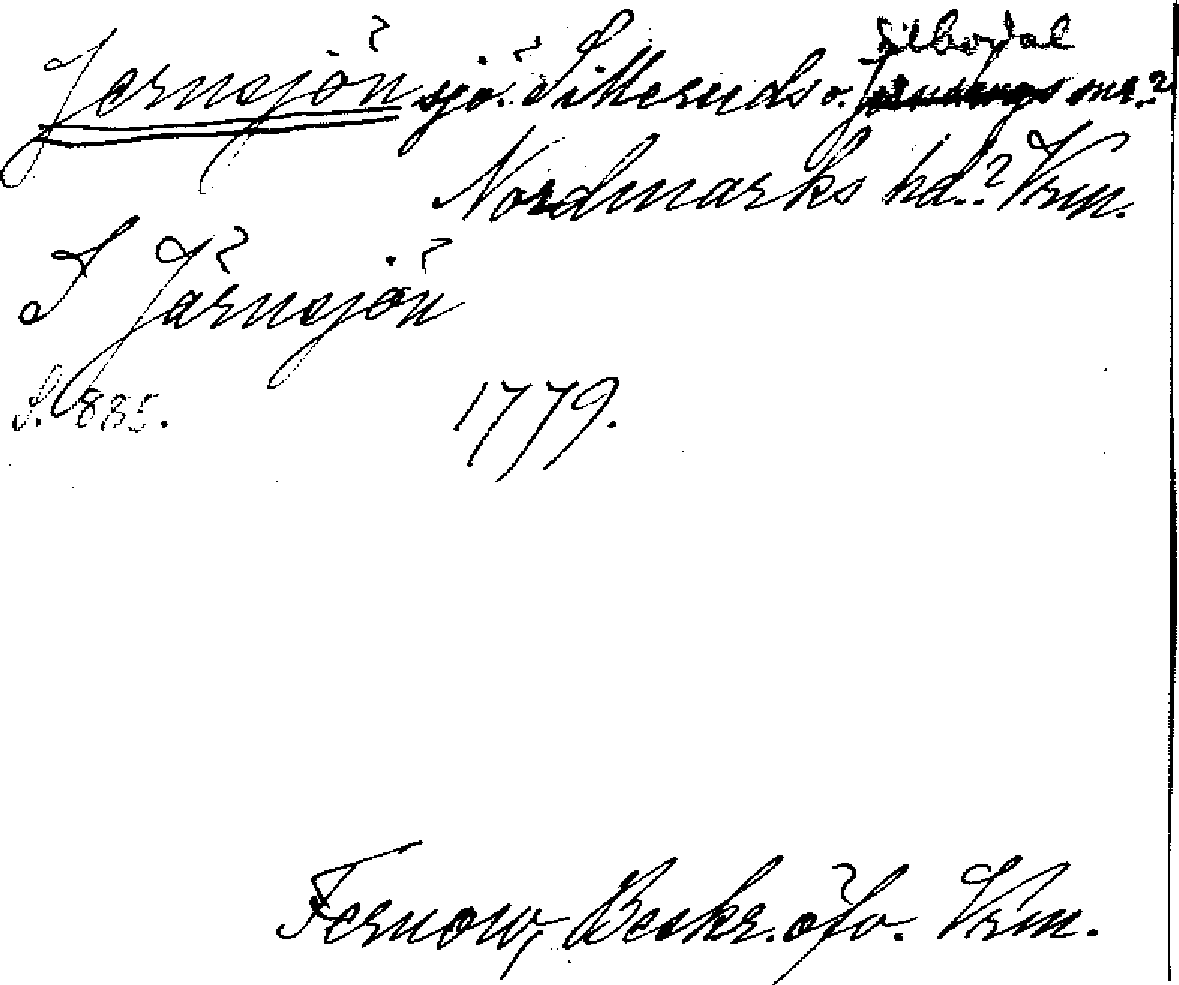 Silbodal
Jernsjön sjö. Silleruds o. snr.?
Nordmarks hd.? Vrm.
I Järnsjön
S. 885. 1779.
Fernow, Beskr. öfv. Vrm.